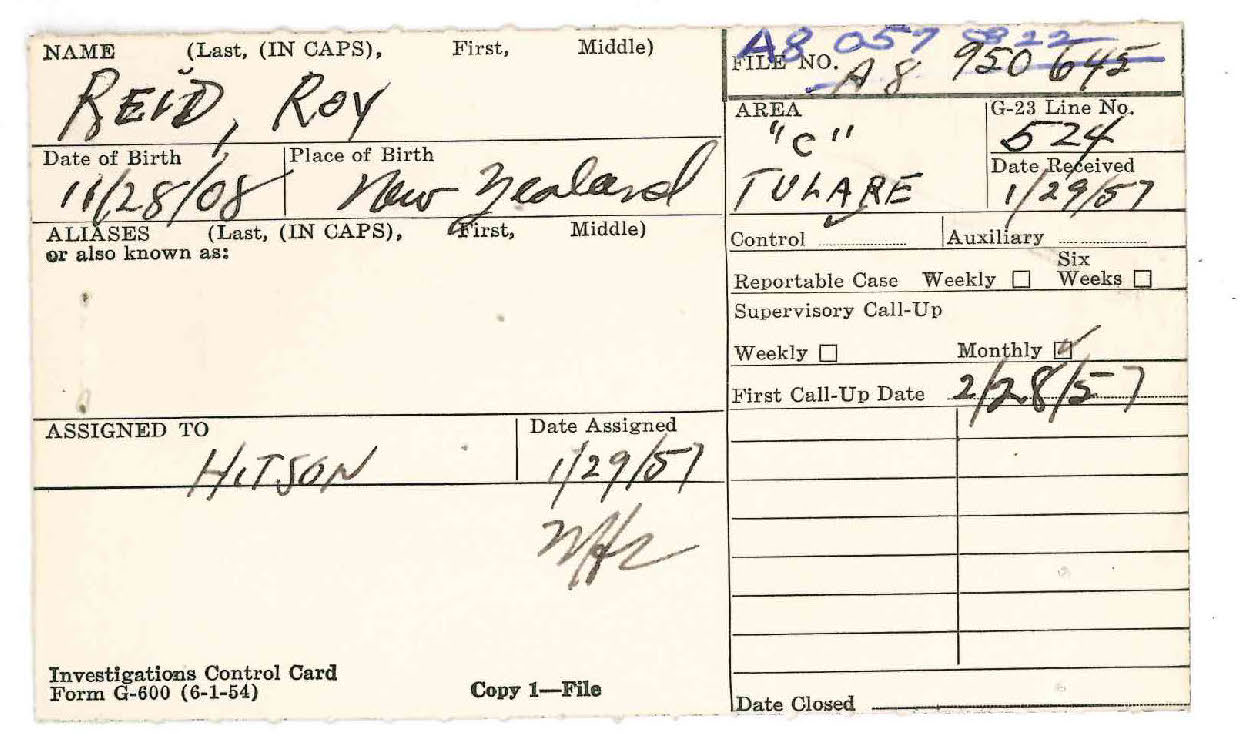 NAME (Last, (IN CAPS), First, Middle)
REID, ROY
Date of Birth
11/28/08
Place of Birth
New Zealand
ALIASES (Last, (IN CAPS), First, Middle)
or also known as:
ASSIGNED TO
HITSON
Date Assigned
1/29/57
Investigations Control Card
Form G-600 (6-1-54)
Copy 1—File
A8 057
FILE NO. A8 950 645
AREA
"C"
TULARE
G-23 Line No.
524
Date Received
1/29/57
Control
Auxiliary
Reportable Case Weekly ☐ Six Weeks ☐
Supervisory Call-Up
Weekly ☐ Monthly ☑
First Call-Up Date 2/28/57
Date Closed